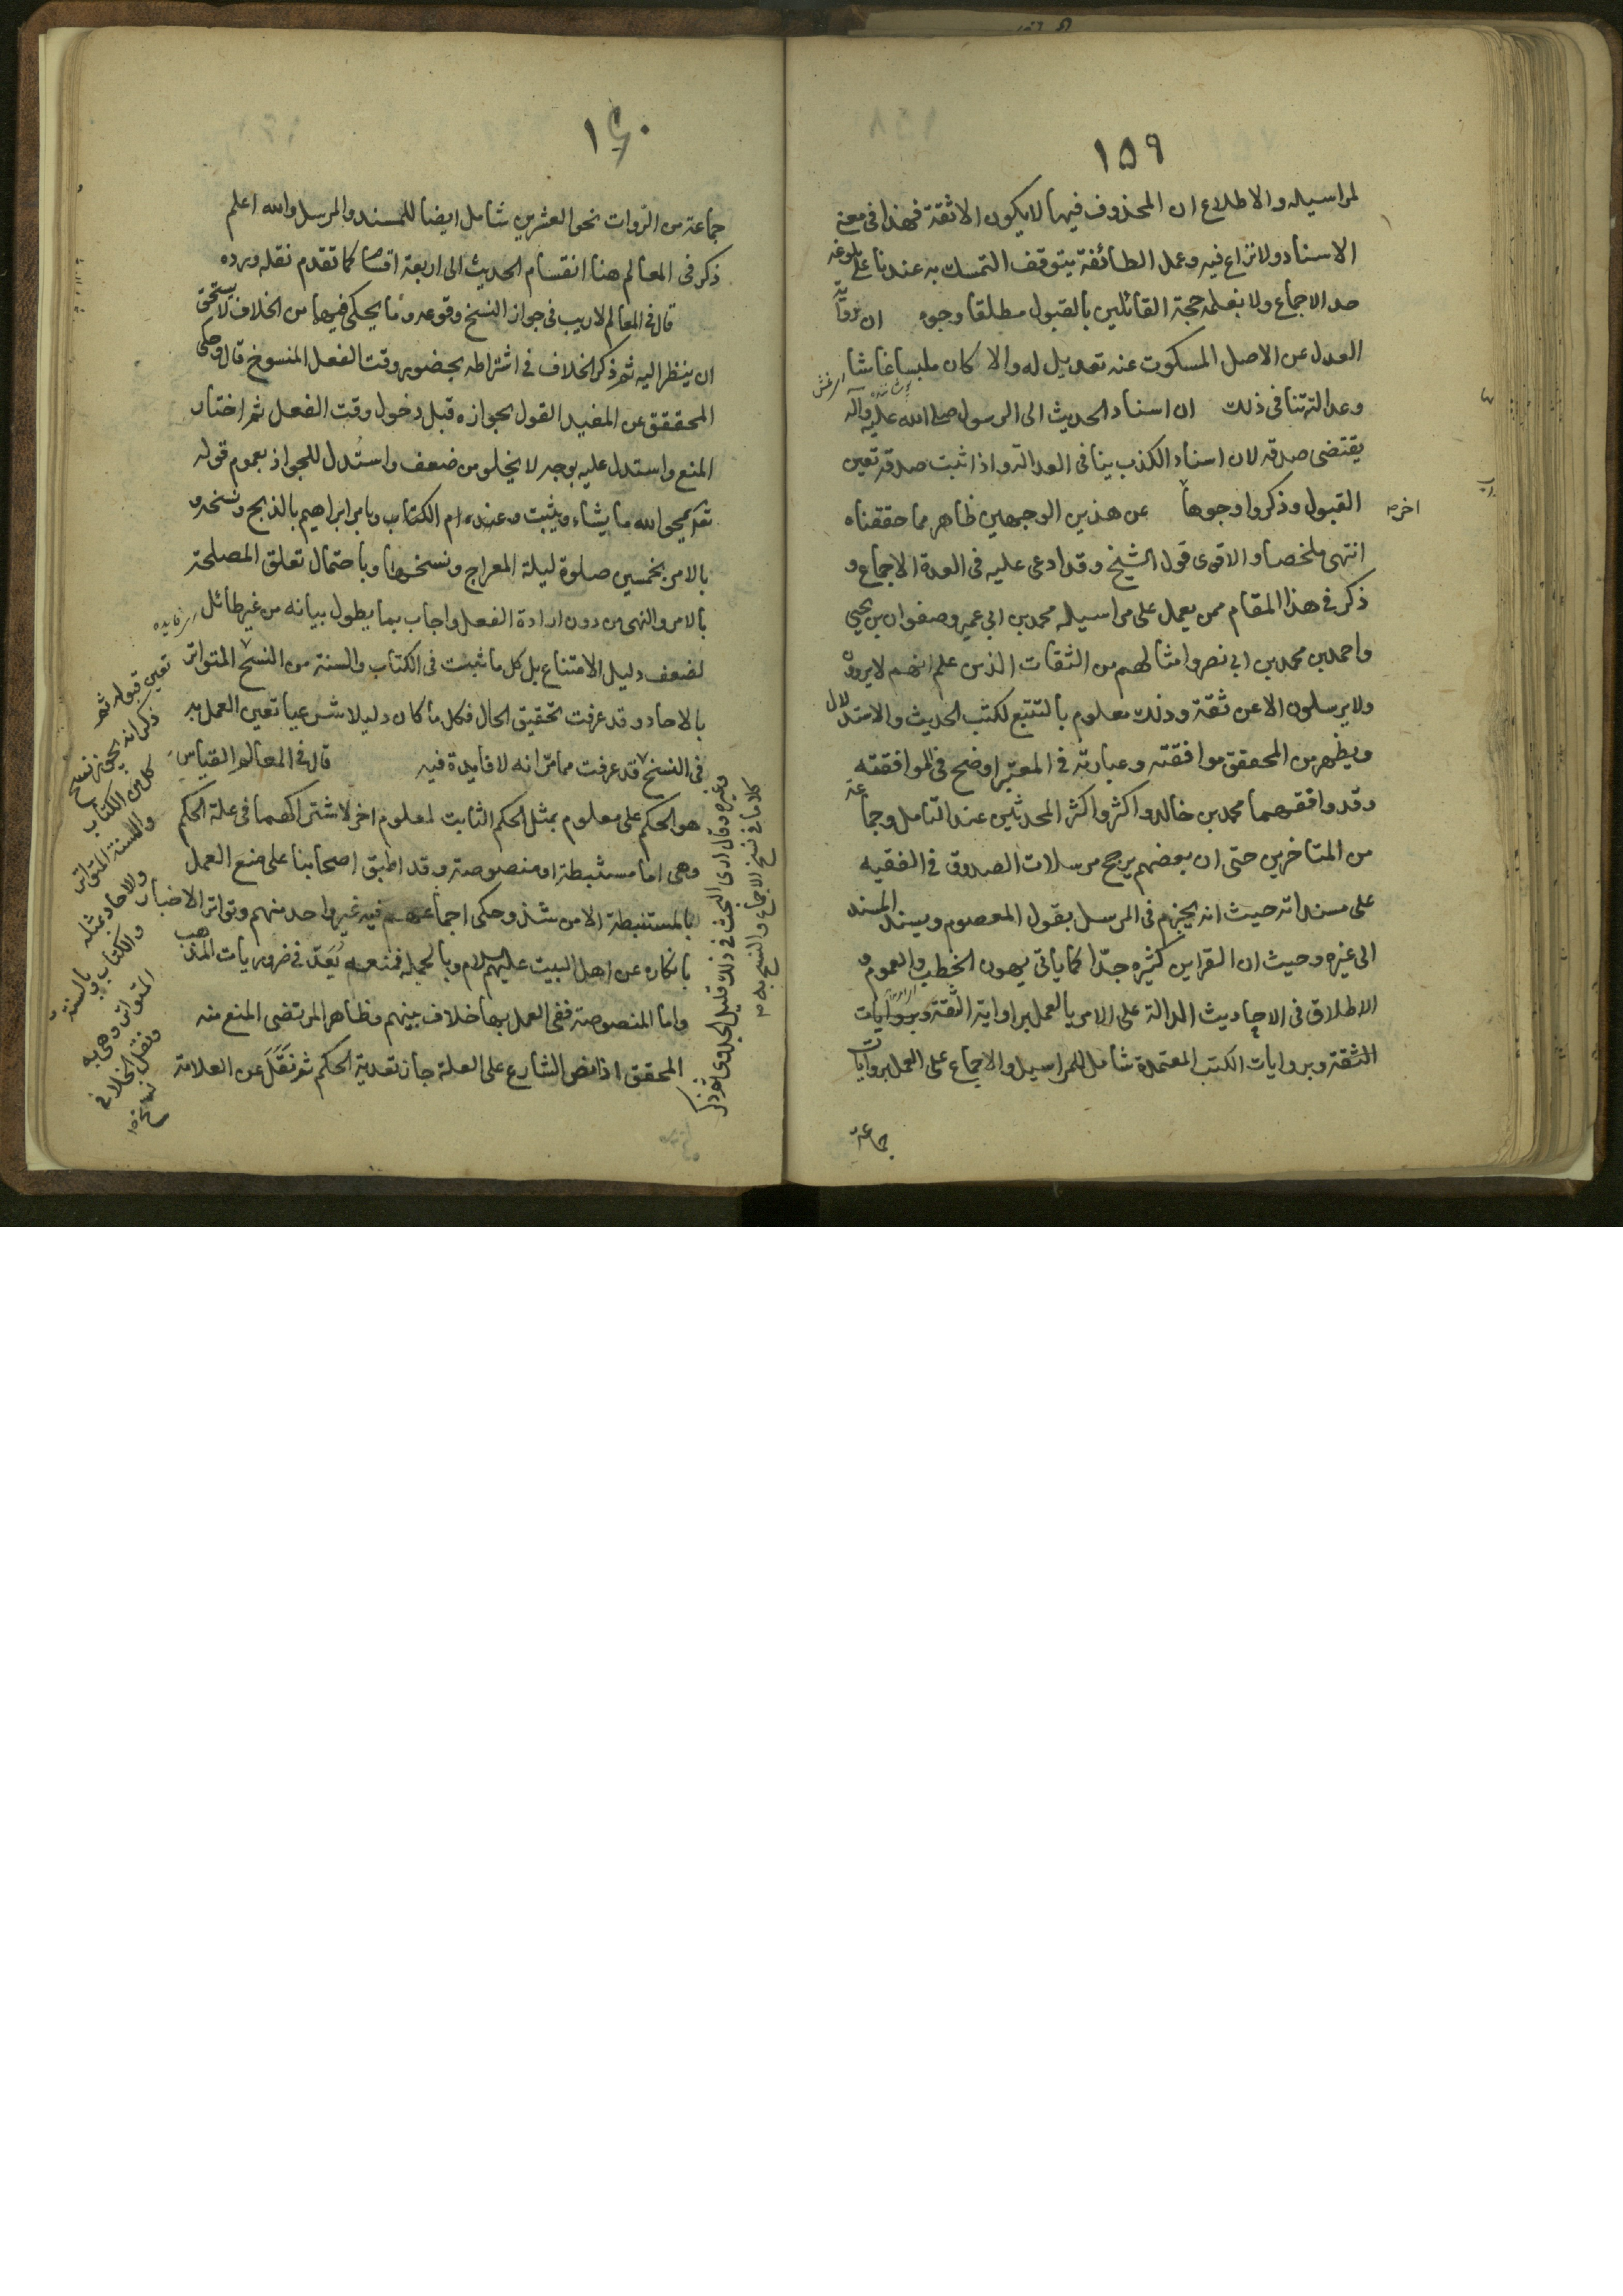 ١٥٩
لمراسيله والاطلاع ان المحذوف فيها لايكون الا ثقة فهذا فى معنى
الاسناد ولا نزاع فيه وعمل الطائفة يتوقف التمسك به عندنا على بلوغه
حد الاجماع ولا نعلمه حجة القائلين بالقبول مطلقا وجوه ان رواية
العدل عن الاصل المسكوت عنه تعديل له والا كان ملبسا غاشا
وعدالته تنافى ذلك ان اسناد الحديث الى الرسول صلى الله عليه وآله
يقتضى صدقه لان اسناد الكذب ينافى العدالة واذا ثبت صدقه تعين
القبول وذكروا وجوها عن هذين الوجهين ظاهر مما حققناه
اخر
انتهى ملخصا والاقوى قول الشيخ وقد ادعى عليه فى العدة الاجماع و
ذكر فى هذا المقام ممن يعمل على مراسيله محمد بن ابى عمير وصفوان بن يحيى
واحمد بن محمد بن ابى نصر وامثالهم من الثقات الذين علم انهم لا يروون
ولا يرسلون الا عن ثقة وذلك معلوم بالتتبع لكتب الحديث والاستدلال
ويظهر من المحقق موافقته وعبارته فى المعتبر اوضح فى الموافقته
وقد وافقهما محمد بن خالد واكثر واكثر المحدثين عند التامل وجماعة
من المتاخرين حتى ان بعضهم يرجح مرسلات الصدوق فى الفقيه
على مسنداته حيث انه يجزم فى المرسل بقول المعصوم ويسند المسند
الى غيره وحيث ان القراين كثيره جدّا كما ياتى يهون الخطب والعموم و
الاطلاق فى الاحاديث الدالة على الامر بالعمل براواية الثقة وبروايات
الثقة وبروايات الكتب المعتمدة شامل للمراسيل والاجماع على العمل بروايات
جماعة
١٦٠
جماعة من الروات نحو العشرين شامل ايضا للمسند والمرسل والله اعلم
ذكر فى المعالم هنا انقسام الحديث الى اربعة اقسام كما تقدم نقله ورده
قال فى المعالم لا ريب فى جواز النسخ ووقوعه وما يحكى فيهما من الخلاف لا يستحق
ان ينظر اليه ثم ذكر الخلاف فى اشتراطه بحضور وقت الفعل المنسوخ قال وحكى
المحققق عن المفيد القول بجوازه قبل دخول وقت الفعل ثم اختار
المنع واستدل عليه بوجه لا يخلو من ضعف واستُدل للجواز بعموم قوله
تعالى يمحوا الله ما يشاء ويثبت وعنده ام الكتاب وبامر ابراهيم بالذبح ونسخه و
بالامر بخمسين صلوة ليلة المعراج ونسخها وباحتمال تعلق المصلحة
بالامر والنهى من دون ارادة الفعل واجاب بما يطول بيانه من غير طائل
لضعف دليل الامتناع بل كل ما ثبت فى الكتاب والسنة من النسخ المتواتر
بالاحاد وقد عرفت تحقيق الحال فكل ما كان دليلا شرعيا تعين العمل به
فى النسخ قد عرفت مما مر انه لا فايدة فيه قال فى المعالم القياس
هو الحكم على معلوم بمثل الحكم الثابت لمعلوم اخر لاشتراكهما فى علة الحكم
وهى اما مستنبطة او منصوصة وقد اطبق اصحابنا على منع العمل
بالمستنبطة الا من شذ وحكى اجماعهم فيه غير واحد منهم وتواتر الاخبار
بانكاره عن اهل البيت عليهم السلام وبالجمله فمنعه يُعَدّ فى ضروريات المذهب
واما المنصوصة ففى العمل بها خلاف بينهم وظاهر المرتضى المنع منه
المحقق اذا نص الشارع على العلة جاز تعدية الحكم ثم نَقَلَ عن العلامة
تعين قبوله ثم
ذكر انه يجوز نسخ
كل من الكتاب
والسنة المتواتر
والاحاد بمثله
والكتاب بالسنة
المتواتر وهى به
ونقل الخلاف فى
وغيره وقال ارى البحث فى ذلك قليل الجدوى ثم ذكر
كلاما فى نسخ الاجماع والنسخ به